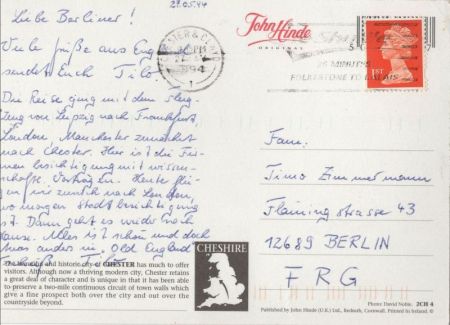 27.05.94
Liebe Berliner!
Viele Grüße aus England
sendet Euch Tilo
Die Reise ging mit dem Flug-
zeug von Leipzig nach Frankfurt,
London, Manchester zunächst
nach Chester. Hier ist die
mit wissen-
Heute flie-
gen wir zurück nach London,
wo morgen Stadtbesichtigung
ist. Dann geht es wieder nach
Hause. Alles ist schön und doch
anders in Old England
Tilo
John Hinde
ORIGINAL
CHESTER &
1994
35 MINUTES
FOLKESTONE TO CALAIS
1ST
Fam.
Timo Zimmermann
Fläming strasse 43
12689 BERLIN
FRG
and historic city of CHESTER has much to offer
visitors. Although now a thriving modern city, Chester retains
a great deal of character and is unique in that it has been able
to preserve a two-mile continuous circuit of town walls which
give a fine prospect both over the city and out over the
countryside beyond.
CHESHIRE
Photo: David Noble. 2CH 4
Published by John Hinde (U.K.) Ltd., Redruth, Cornwall. Printed in Ireland. ©